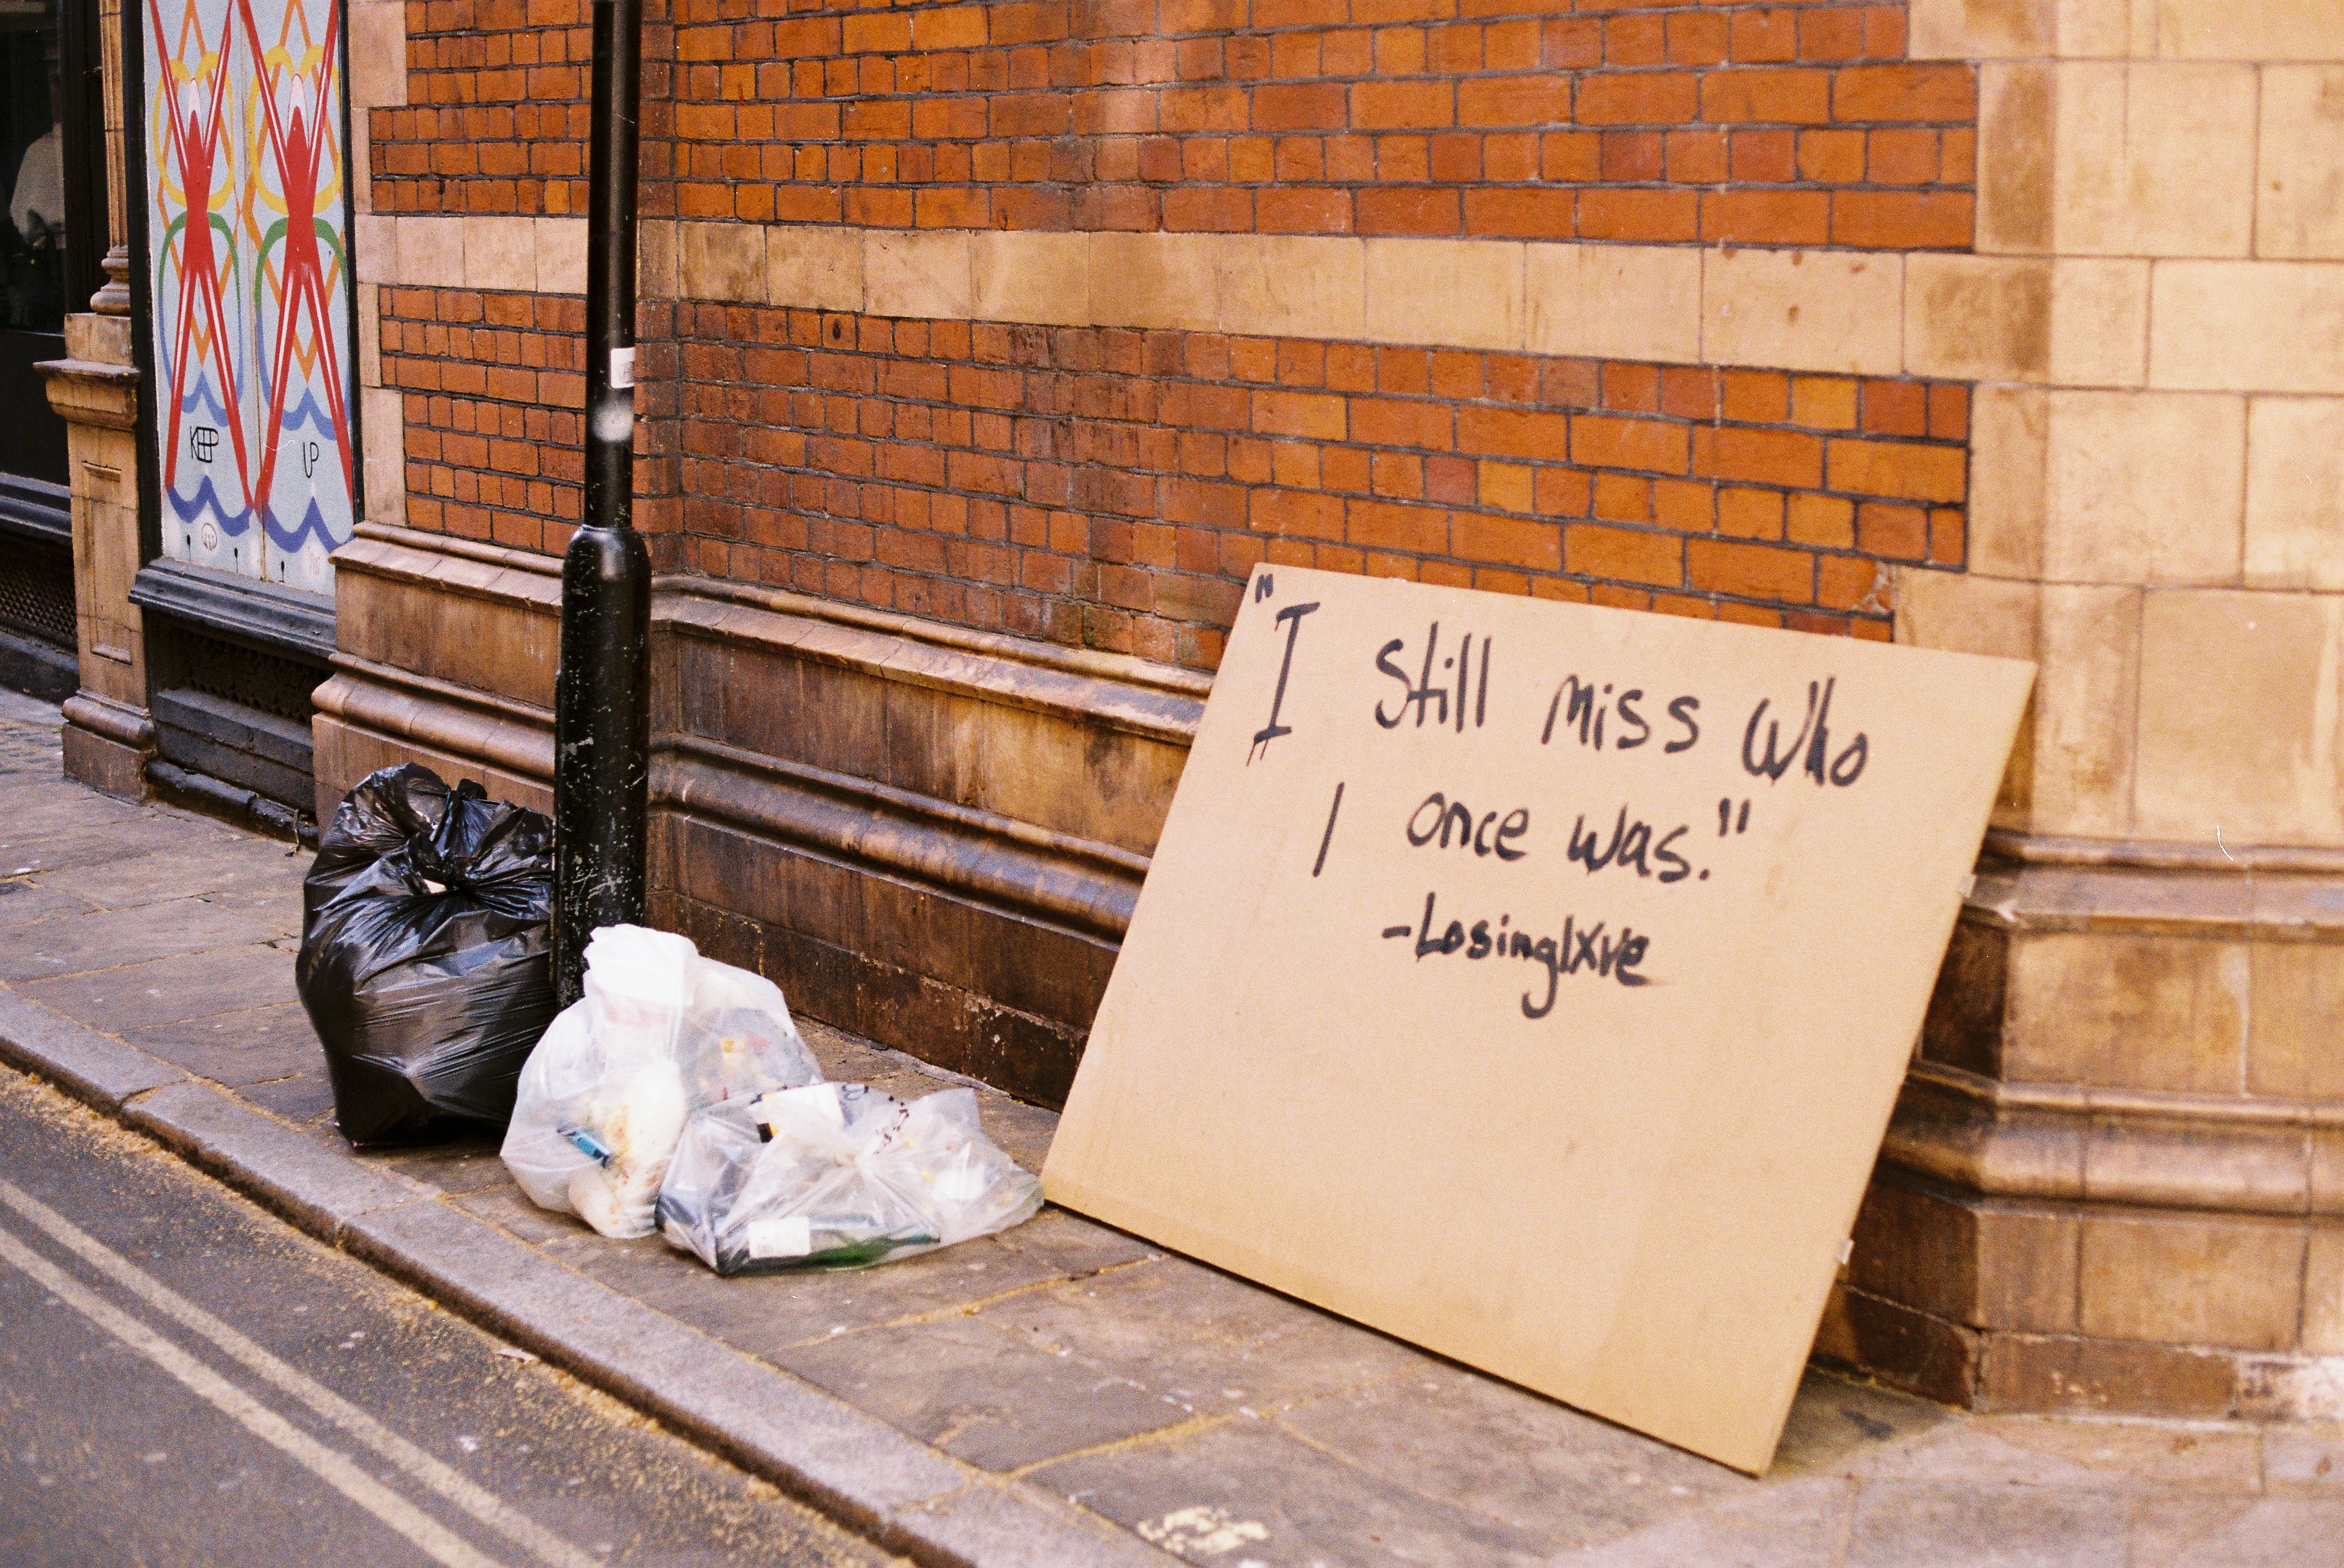 KEEP
UP
"I Still miss who
I once was."
-Losinglxve